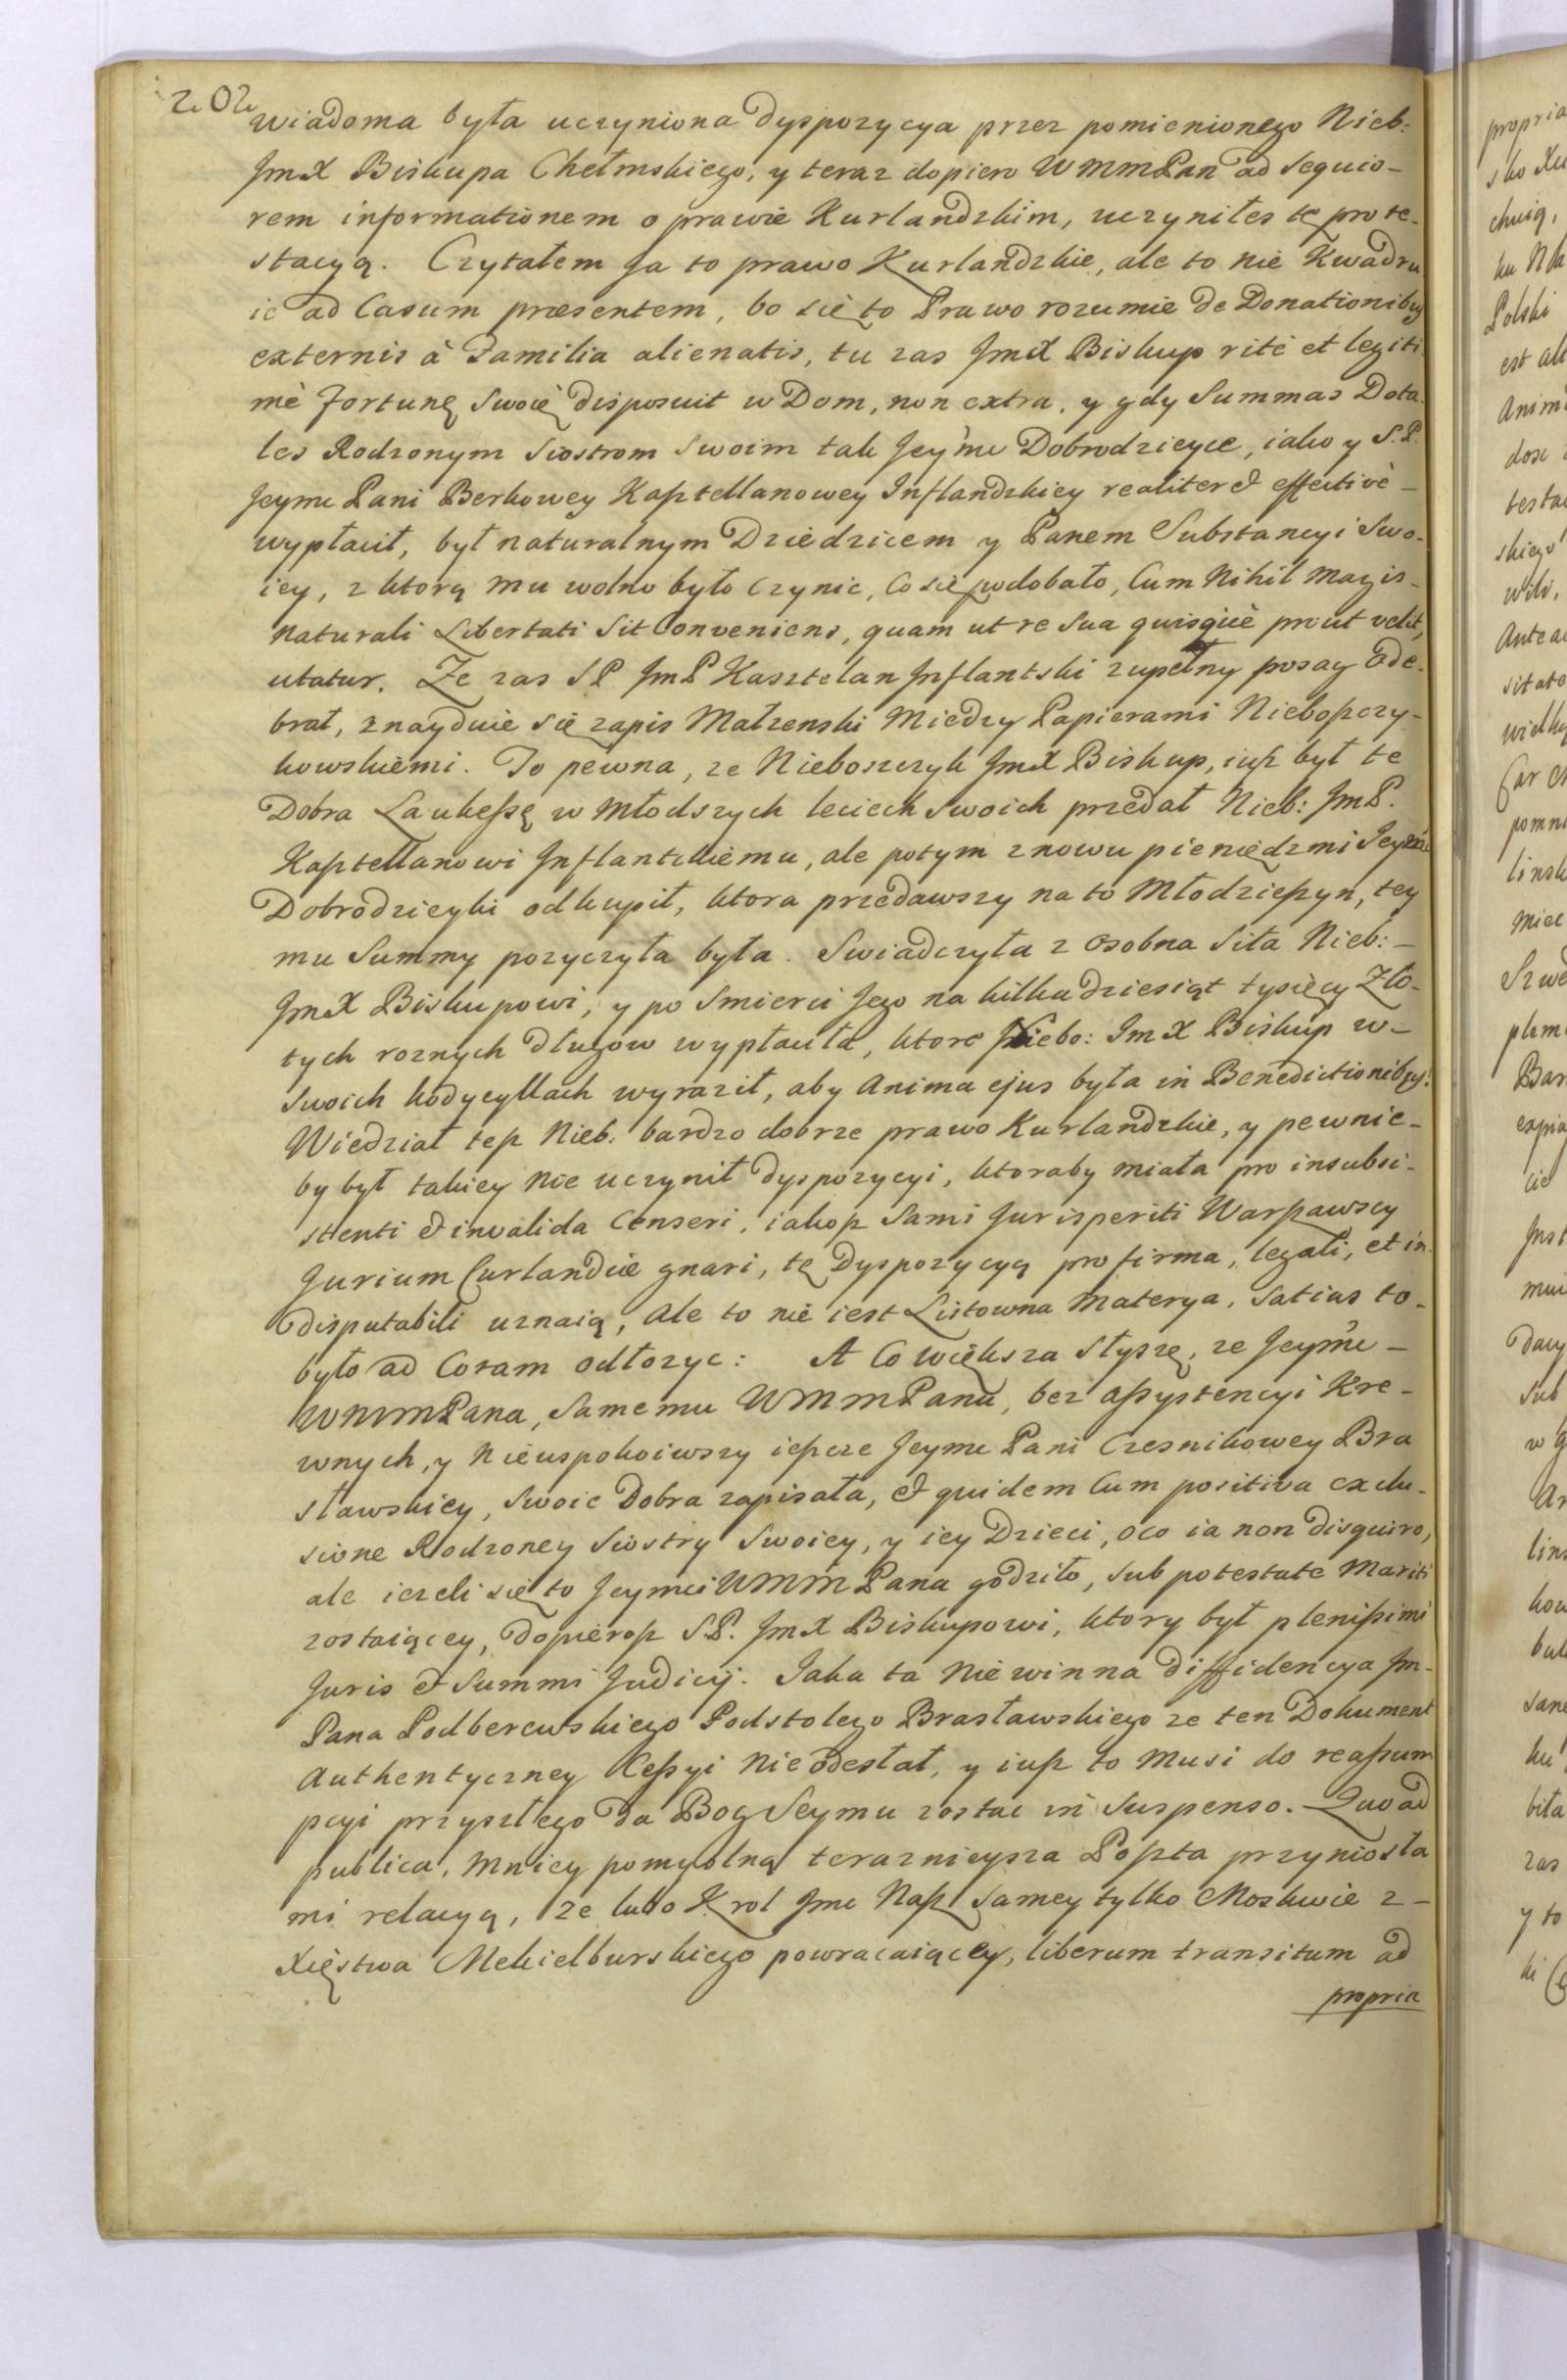 202
wiadoma była uczyniona dyspozycya przez pomienionego Nieb:
JmX Biskupa Chełmskiego, y teraz dopiero WMMPan ad sequio-
rem informationem o prawie Kurlandzkim, uczyniłes tę prote-
stacyą. Czytałem Ja to prawo Kurlandzkie, ale to nie Kwadru
ie ad Casum præsentem, bo się to Prawo rozumie de Donationibus
externis à Familia alienatis, tu zas JmX Biskup ritè et legiti
mè Fortunę Swoię disposuit w Dom, non extra, y gdy Summas Dota
les Rodzonym Siostrom Swoim tak Jeymci Dobrodzieyce, iako y S.P.
Jeymci Pani Berkowey Kasztellanowey Inflandzkiey realiter & effectivè-
wypłacił, był naturalnym Dziedzicem y Panem Substancyi Swo-
iey, z ktorą mu wolno było Czynic, Co się podobało, Cum Nihil magis-
naturali Libertati Sit Conveniens, quam ut re Sua quisquè prout velit,
utatur. Ze zas SP JmP Kasztelan Inflantski zupełny posag Ode-
brał, znayduie się zapis Małzenski Miedzy Papierami Nieboszczy-
kowskiemi. To pewna, ze Nieboszczyk JmX Biskup, iusz był te
Dobra Laukeszę w Młodszych leciech Swoich przedał Nieb: JmP.
Kasztellanowi Inflantskiemu, ale potym znowu pieniędzmi Jeymci
Dobrodzieyki odkupił, ktora przedawszy na to Młodzieszyn, tey
mu Summy pozyczyła była. Swiadczyła z Osobna Siła Nieb:-
JmX Biskupowi, y po Smierci Jego na kilkadziesiąt tysięcy Zło-
tych roznych długow wypłaciła, ktore Niebo: JmX Biskup w-
Swoich kodycyllach wyraził, aby Anima ejus była in Benedictionibus.
Wiedział tesz Nieb: bardzo dobrze prawo Kurlandzkie, y pewnie-
by był takiey Nie uczynił dyspozycyi, ktoraby miała pro insubsi-
stenti & invalida Censeri, iakosz Sami Jurisperiti Warszawscy
Jurium Curlandiæ gnari, tę Dyspozycyą pro firma, legali, et in
disputabili uznaią, Ale to nie iest Listowna Materya, Satius to-
było ad Coram odłozyc: A Co większa Słyszę, ze Jeymci-
WMMPana, Samemu WMMPanu, bez assystencyi Kre-
wnych, y Nieuspokoiwszy ieszcze Jeymci Pani Czesnikowey Bra
sławskiey, Swoie Dobra zapisała, & quidem Cum positiva exclu-
sione Rodzoney Siostry Swoiey, y iey Dzieci, Oco ia non disquiro,
ale iezeli się to Jeymci WMMPana godziło, Sub potestate Mariti
zostaiącey, dopierosz S.P. JmX Biskupowi, ktory był plenissimi
Juris & Summi Judicij. Jaka ta Niewinna diffidencya Jm-
Pana Podberewskiego Podstolego Brasławskiego ze ten Dokument
Authentyczney Cessyi Nie odesłał, y iusz to Musi do reassum
pcyi przyszłego da Bog Seymu zostac in Suspenso. Quoad
publica, Mniey pomyslną teraznieysza Poszta przyniosła
mi relacyą, ze lubo Krol Jmc Nasz Samey tylko Moskwie z-
Xięstwa Mekielburskiego powracaiącey, liberum transitum ad
propria